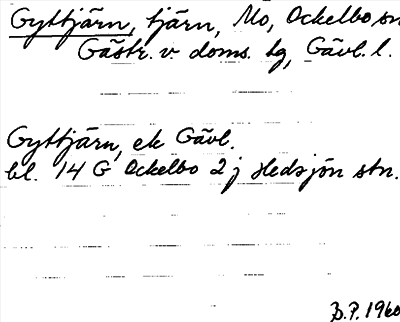 Gyttjärn, tjärn, Mo, Ockelbo, sn
Gästr. v. doms. tg, Gävl. l.
Gyttjärn, ek Gävl.
bl. 14 G Ockelbo 2 j Hedsjön stn.
B.P. 1960